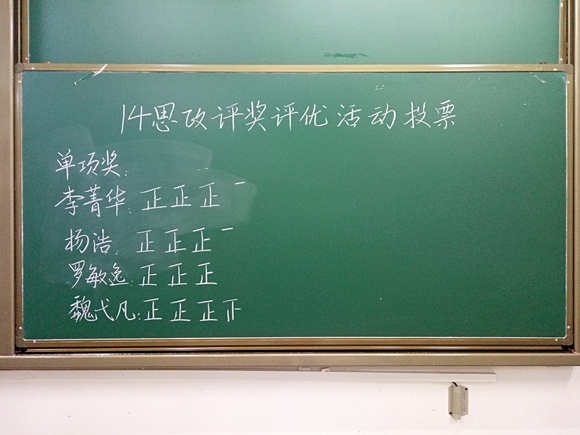 14思政评奖评优活动投票
单项奖:
李菁华:正正正一
杨浩:正正正一
罗敏逸:正正正
魏弋凡:正正正